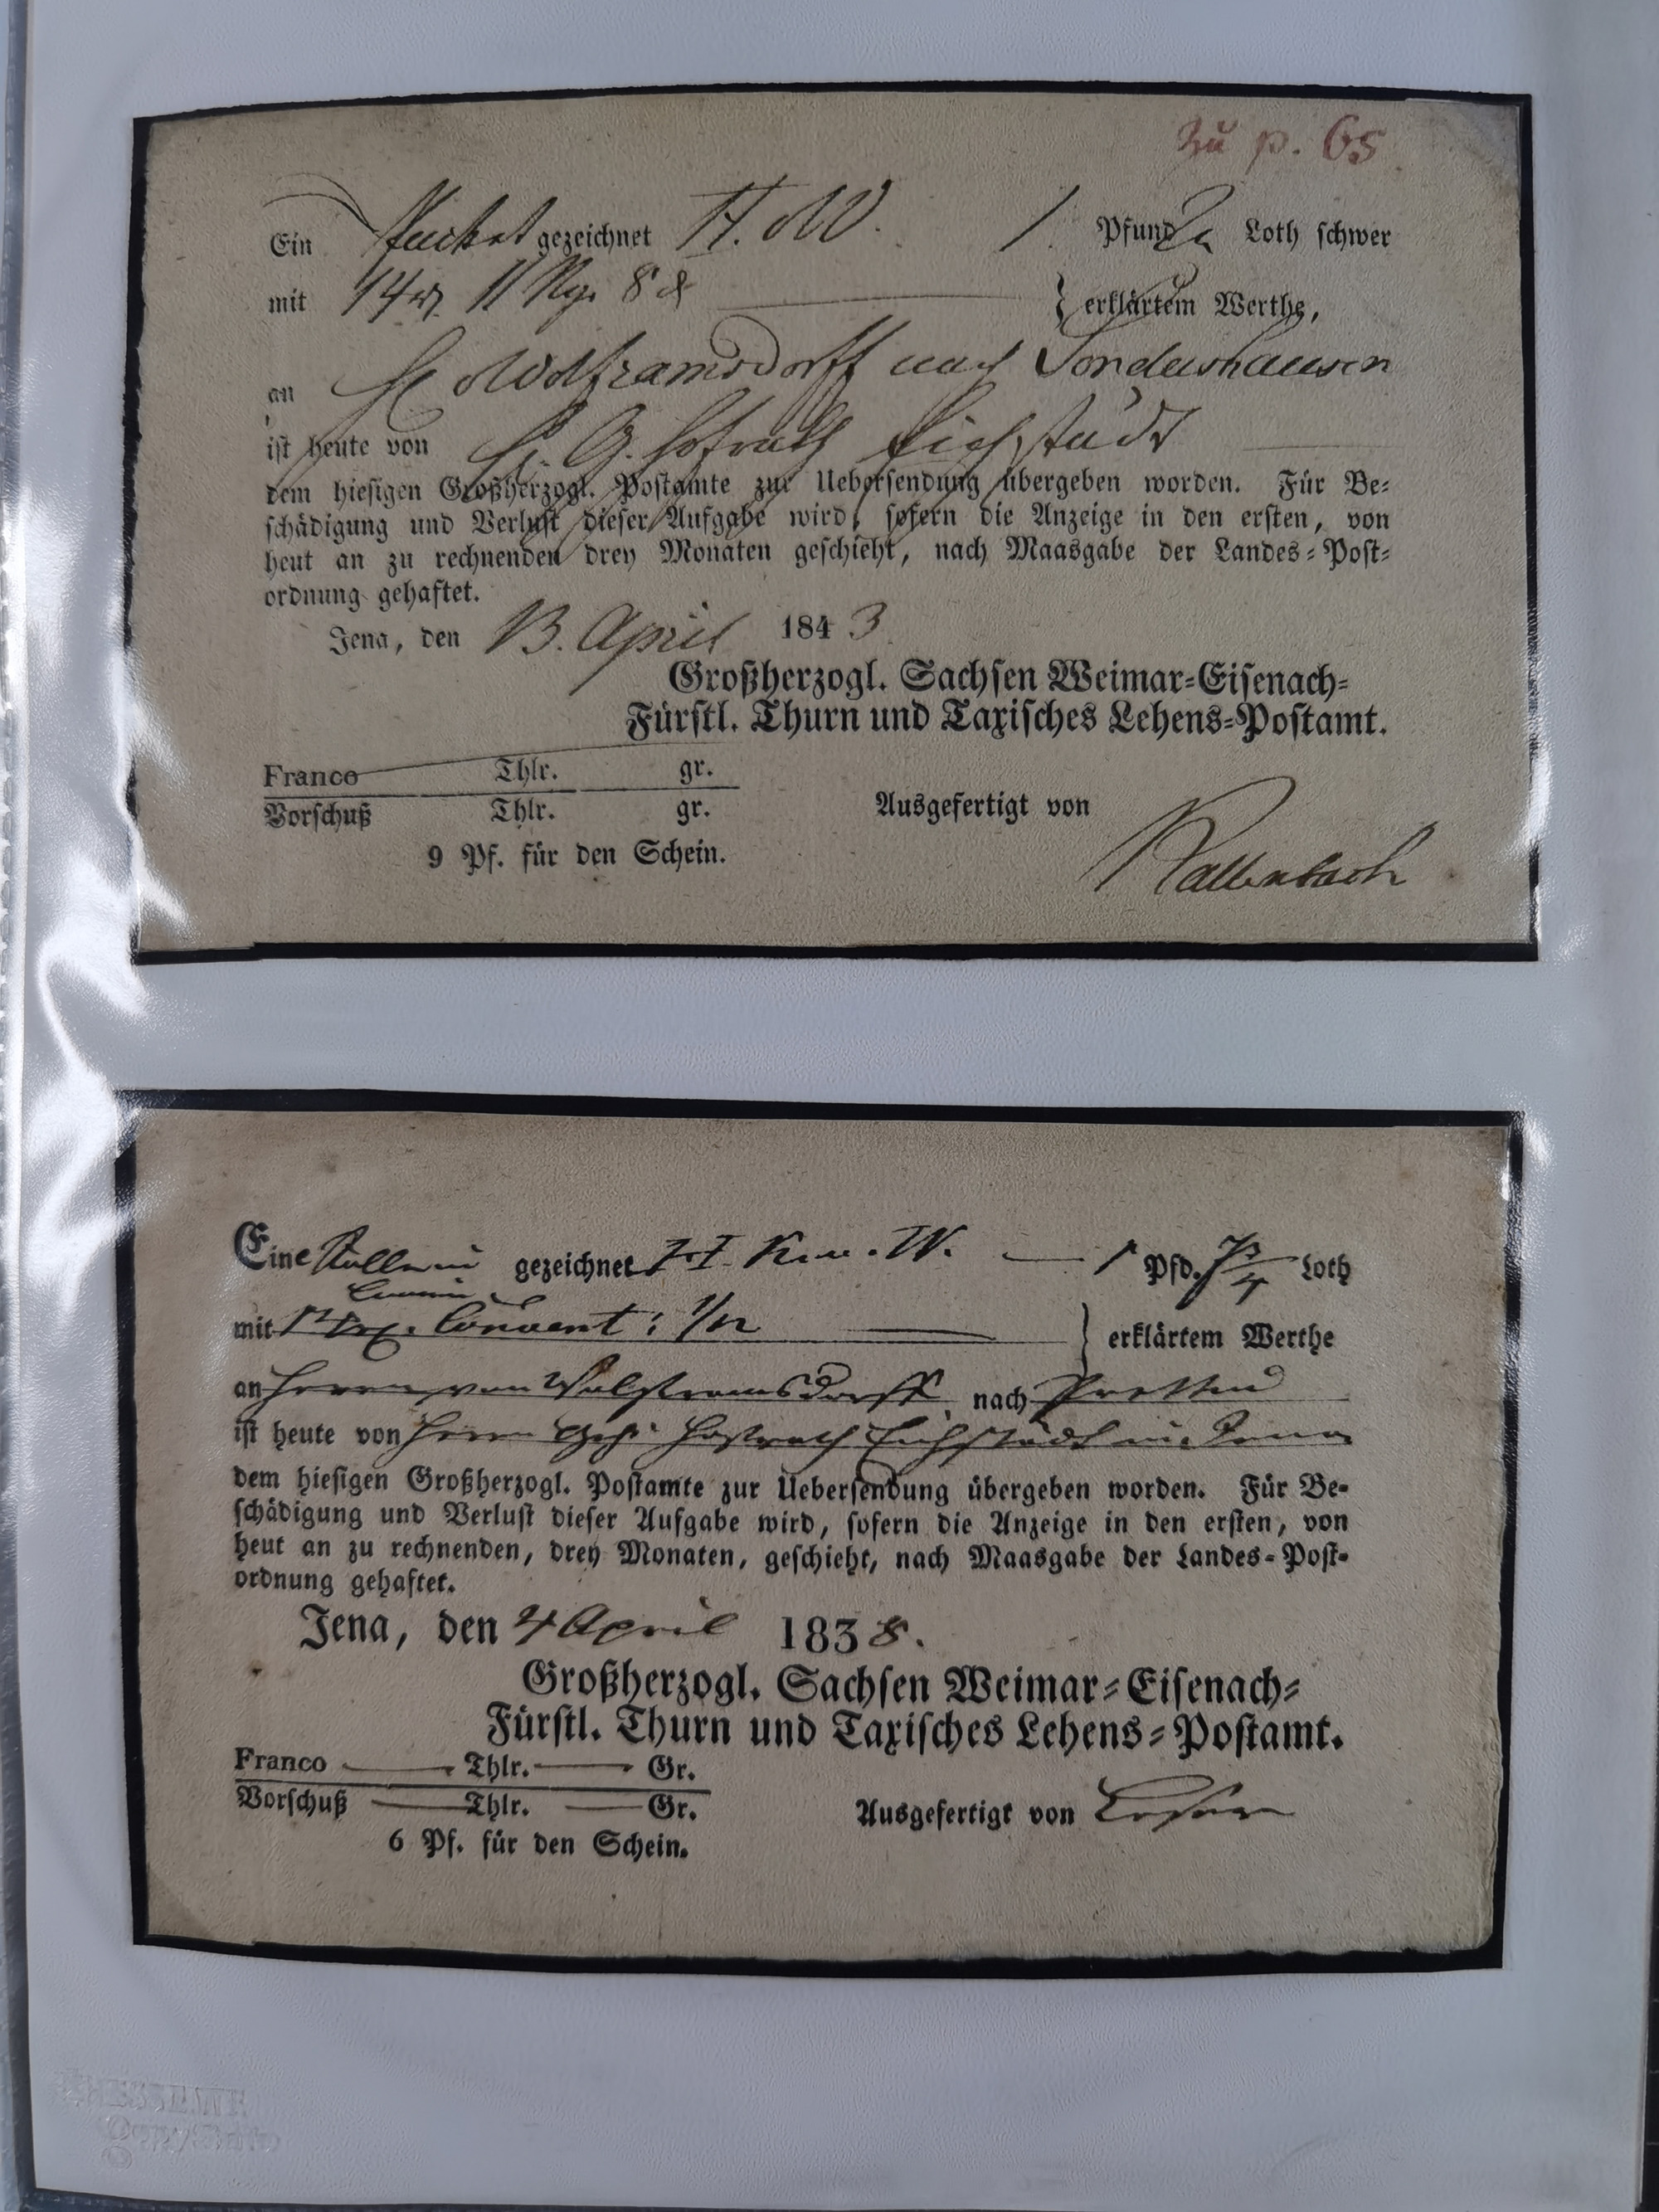 Zu p. 65
Ein Packet gezeichnet H. W. 1 Pfund Loth schwer
mit 14 11 Ngr. 8 ₰ } erklärtem Werthe,
an H Wolframsdorff nach Sondershausen
ist heute von H. G. Hofrath Eichstädt
dem hiesigen Großherzogl. Postamte zur Uebersendung übergeben worden. Für Be-
schädigung und Verlust dieser Aufgabe wird, sofern die Anzeige in den ersten, von
heut an zu rechnenden drey Monaten geschieht, nach Maasgabe der Landes-Post-
ordnung gehaftet.
Jena, den 13. April 1843
Großherzogl. Sachsen Weimar-Eisenach-
Fürstl. Thurn und Taxisches Lehens-Postamt.
Franco Thlr. gr.
Vorschuß Thlr. gr.
9 Pf. für den Schein.
Ausgefertigt von
Eine gezeichnet W. 1 Pfd. Loth
mit Convent: } erklärtem Werthe
an Herrn von Wolframsdorff nach Prettin
ist heute von Herrn Geh. Hofrath Eichstädt in Jena
dem hiesigen Großherzogl. Postamte zur Uebersendung übergeben worden. Für Be-
schädigung und Verlust dieser Aufgabe wird, sofern die Anzeige in den ersten, von
heut an zu rechnenden, drey Monaten, geschieht, nach Maasgabe der Landes-Post-
ordnung gehaftet.
Jena, den 4 April 1838.
Großherzogl. Sachsen Weimar-Eisenach-
Fürstl. Thurn und Taxisches Lehens-Postamt.
Franco Thlr. Gr.
Vorschuß Thlr. Gr.
6 Pf. für den Schein.
Ausgefertigt von